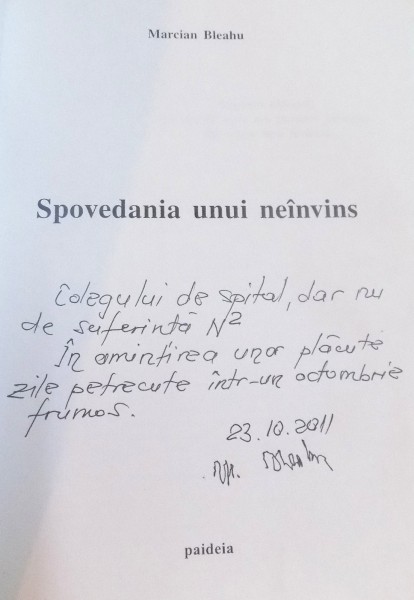 Marcian Bleahu
Spovedania unui neînvins
Colegului de spital, dar nu
de suferintă N²
În amintirea unor plăcute
zile petrecute într-un octombrie
frumos.
23.10.2011
M. Bleahu
paideia